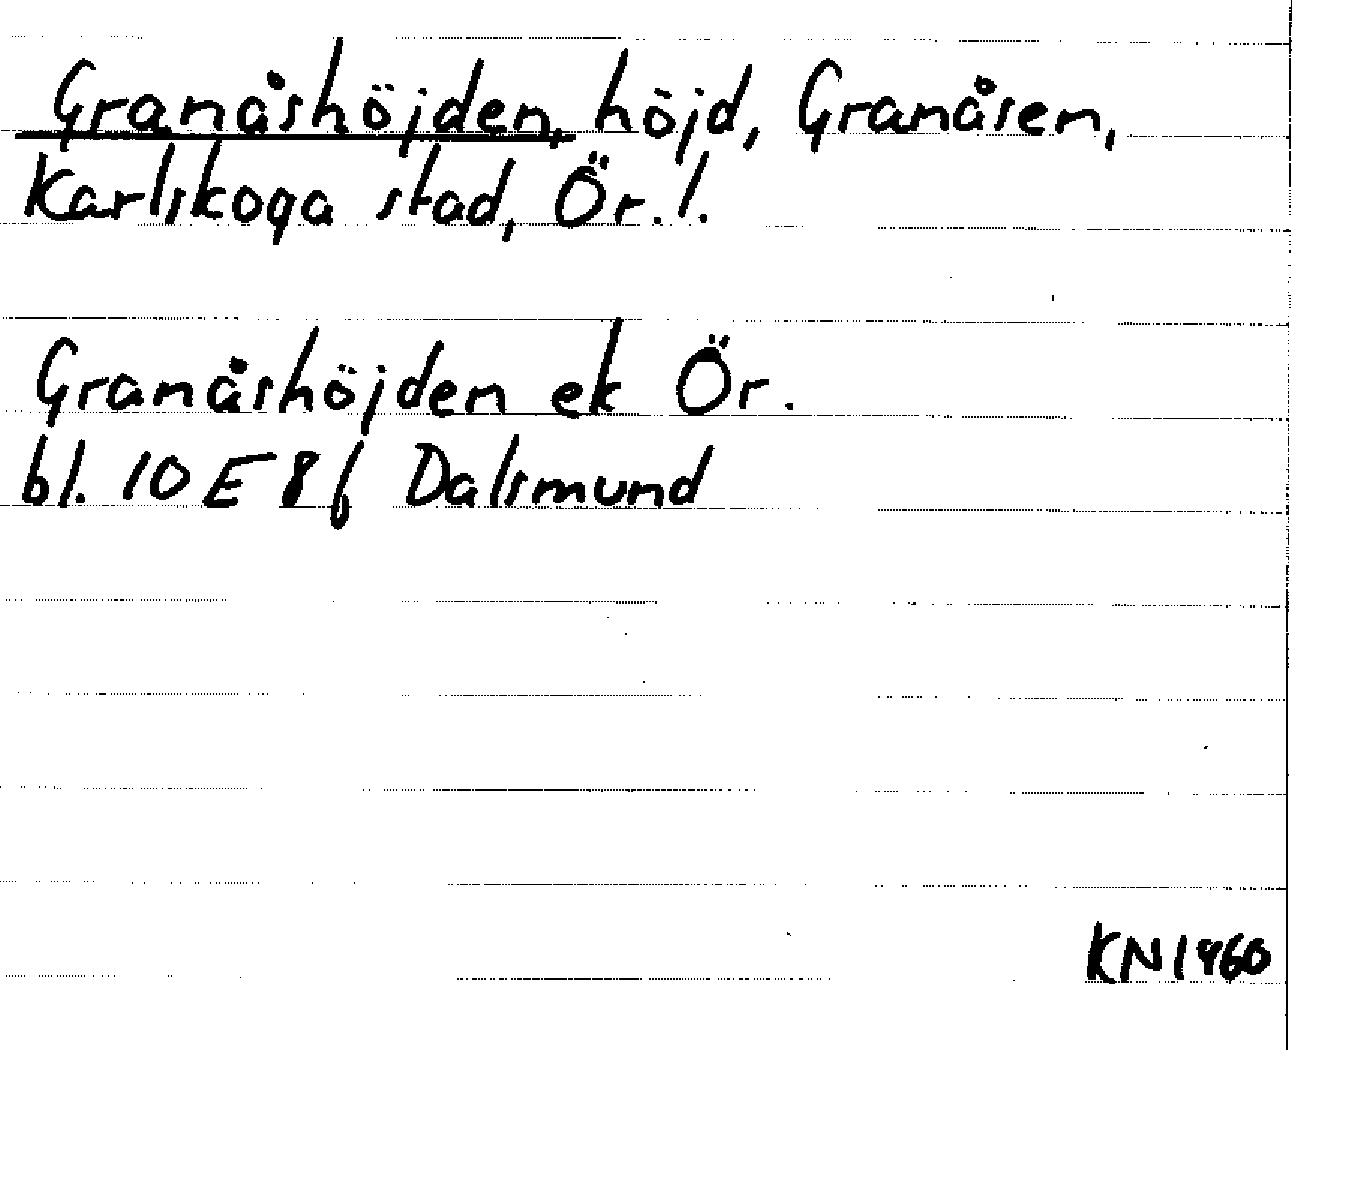 Granåshöjden, höjd, Granåsen,
Karlskoga stad, Ör. l.
Granåshöjden ek Ör.
bl. 10 E 8 f Dalsmund
KN 1960